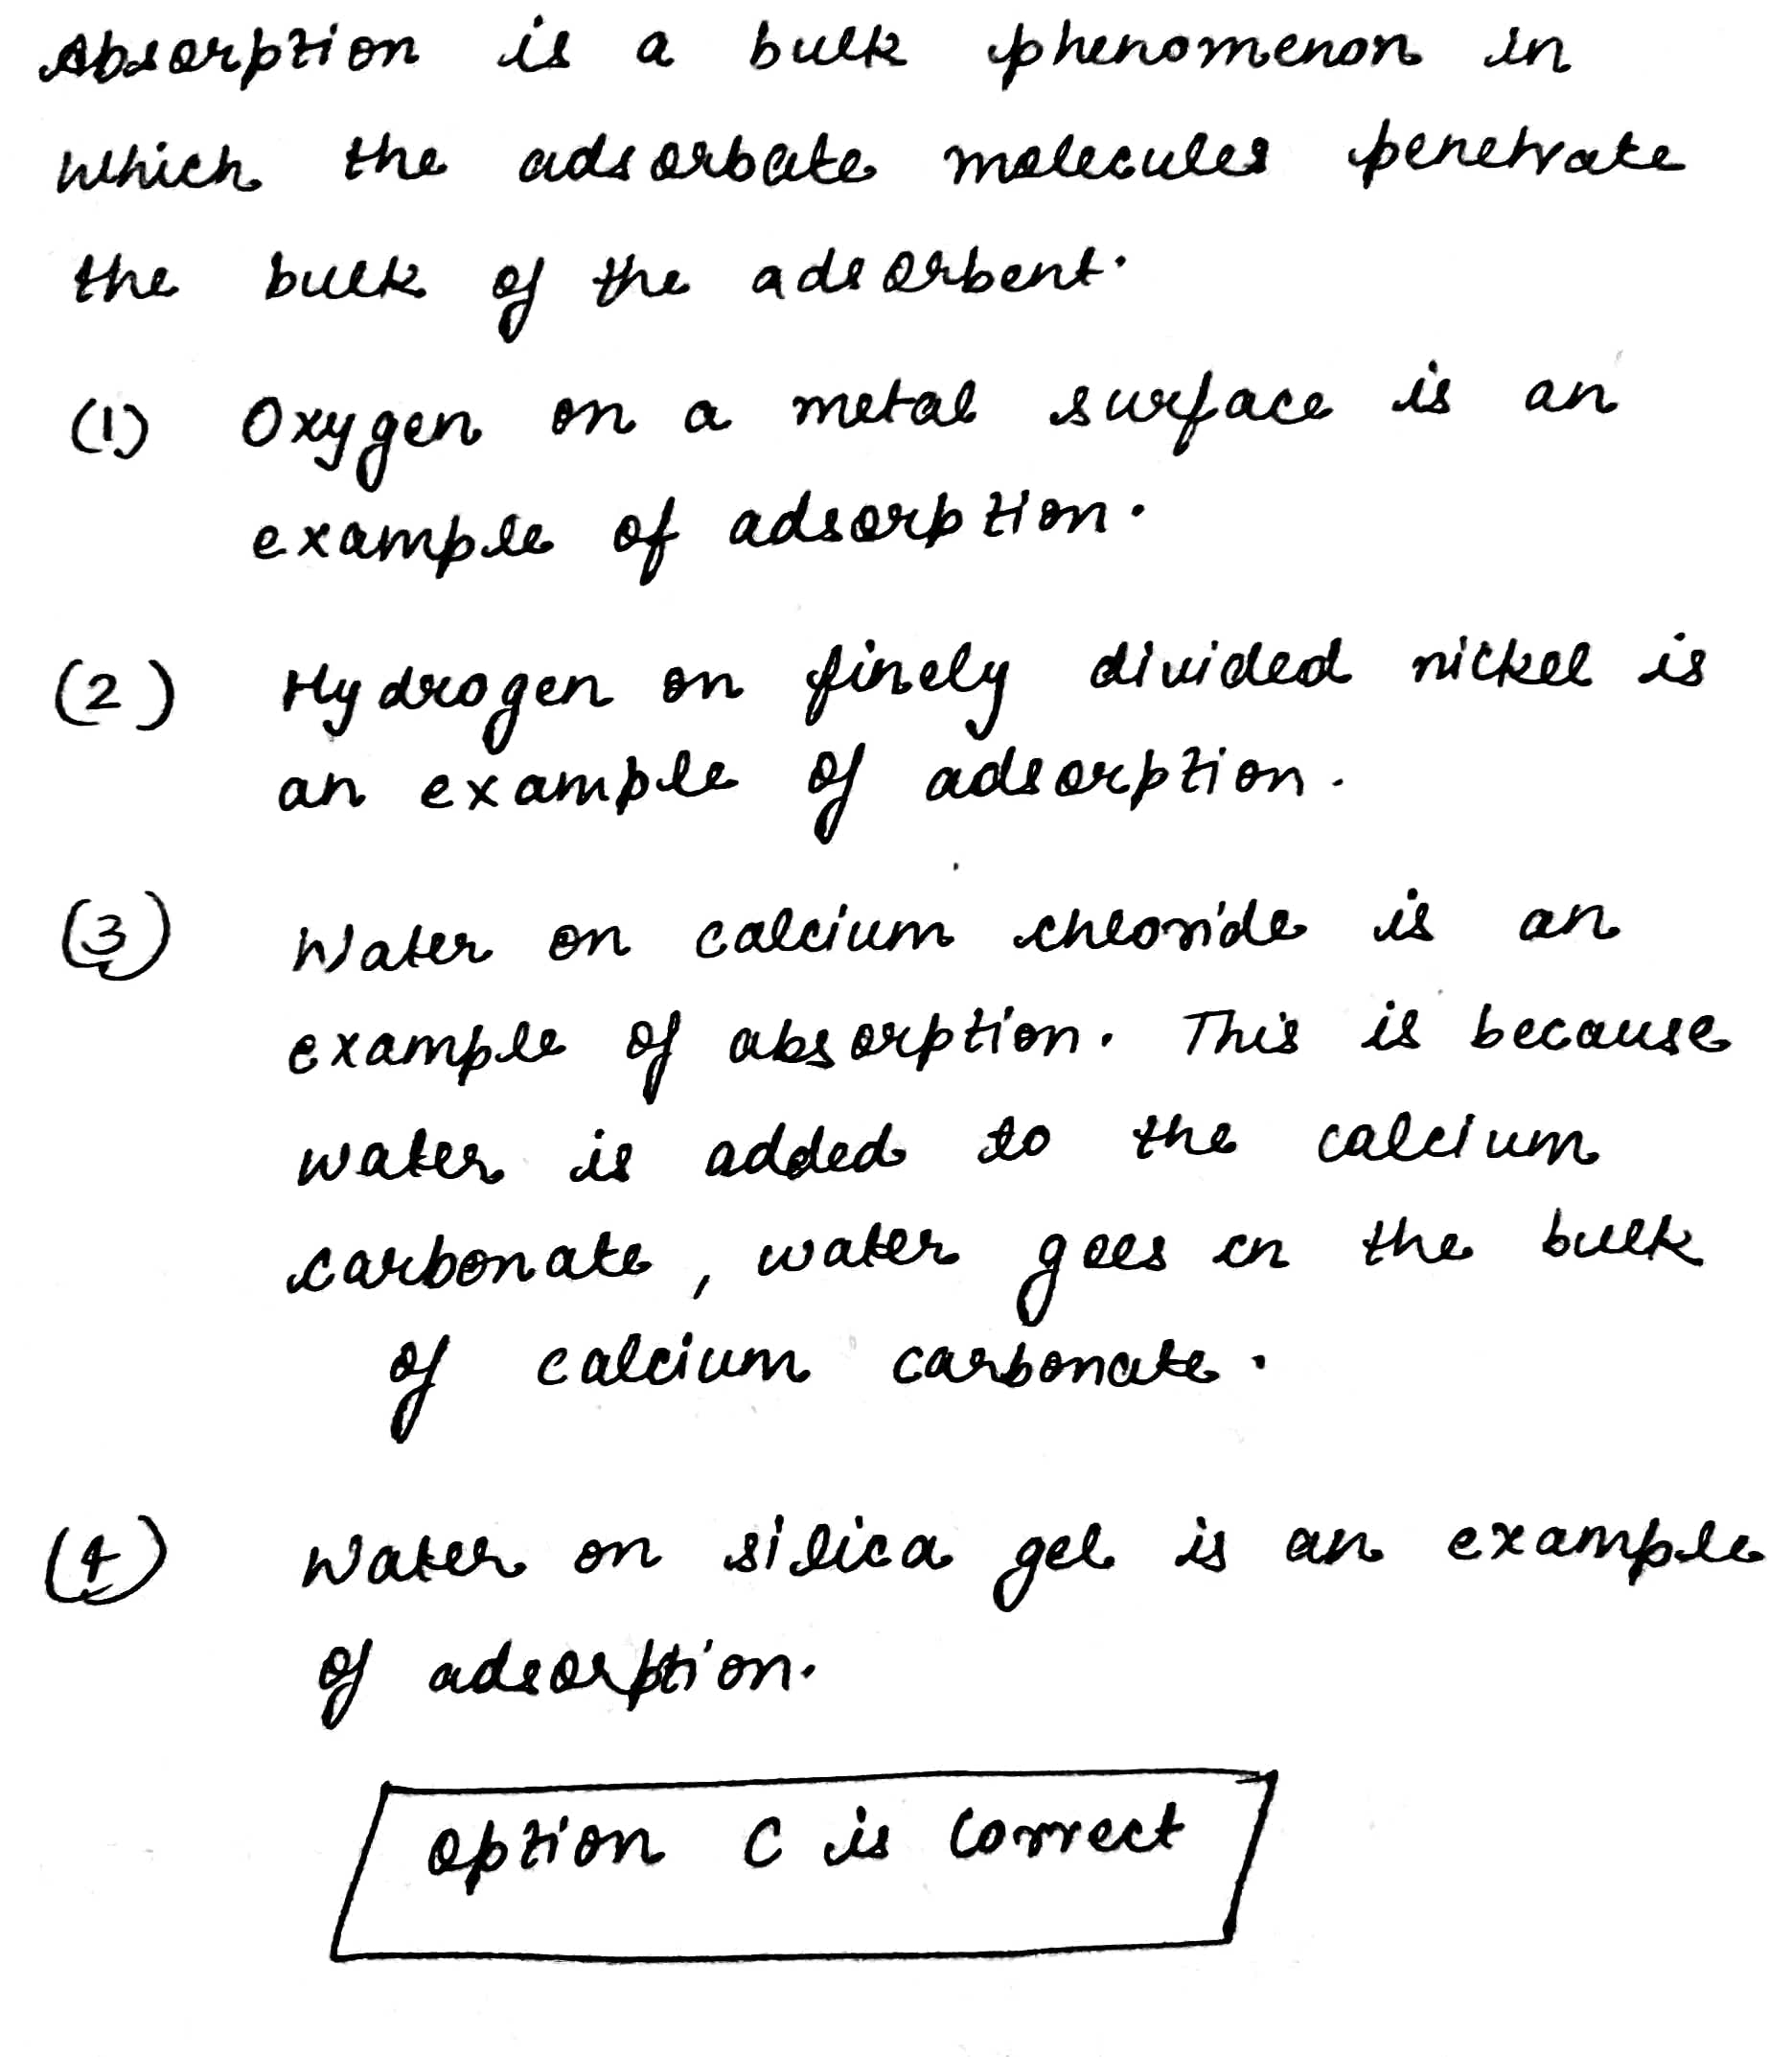 Absorption is a bulk phenomenon in
which the adsorbate molecules penetrate
the bulk of the adsorbent.
(1) Oxygen on a metal surface is an
example of adsorption.
(2) Hydrogen on finely divided nickel is
an example of adsorption.
(3) Water on calcium chloride is an
example of absorption. This is because
water is added to the calcium
carbonate, water goes in the bulk
of calcium carbonate.
(4) Water on silica gel is an example
of adsorption.
option C is correct